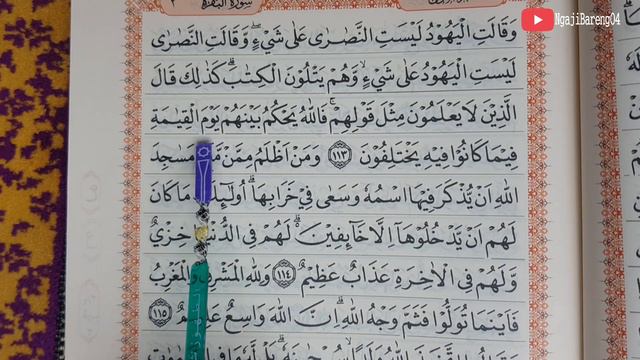 سورة البقرة ٢
NgajiBareng04
وَقَالَتِ الْيَهُوْدُ لَيْسَتِ النَّصٰرٰى عَلٰى شَيْءٍۖ وَّقَالَتِ النَّصٰرٰى
لَيْسَتِ الْيَهُوْدُ عَلٰى شَيْءٍۙ وَّهُمْ يَتْلُوْنَ الْكِتٰبَۗ كَذٰلِكَ قَالَ
الَّذِيْنَ لَا يَعْلَمُوْنَ مِثْلَ قَوْلِهِمْۚ فَاللّٰهُ يَحْكُمُ بَيْنَهُمْ يَوْمَ الْقِيٰمَةِ
فِيْمَا كَانُوْا فِيْهِ يَخْتَلِفُوْنَ ١١٣ وَمَنْ اَظْلَمُ مِمَّنْ مَسٰجِدَ
اللّٰهِ اَنْ يُّذْكَرَ فِيْهَا اسْمُهٗ وَسَعٰى فِيْ خَرَابِهَاۗ مَا كَانَ
لَهُمْ اَنْ يَّدْخُلُوْهَآ اِلَّا خَاۤىِٕفِيْنَۗ لَهُمْ فِى الدُّنْيَا خِزْيٌ
وَّلَهُمْ فِى الْاٰخِرَةِ عَذَابٌ عَظِيْمٌ ١١٤ وَلِلّٰهِ الْمَشْرِقُ وَالْمَغْرِبُ
فَاَيْنَمَا تُوَلُّوْا فَثَمَّ وَجْهُ اللّٰهِۗ اِنَّ اللّٰهَ وَاسِعٌ عَلِيْمٌ ١١٥